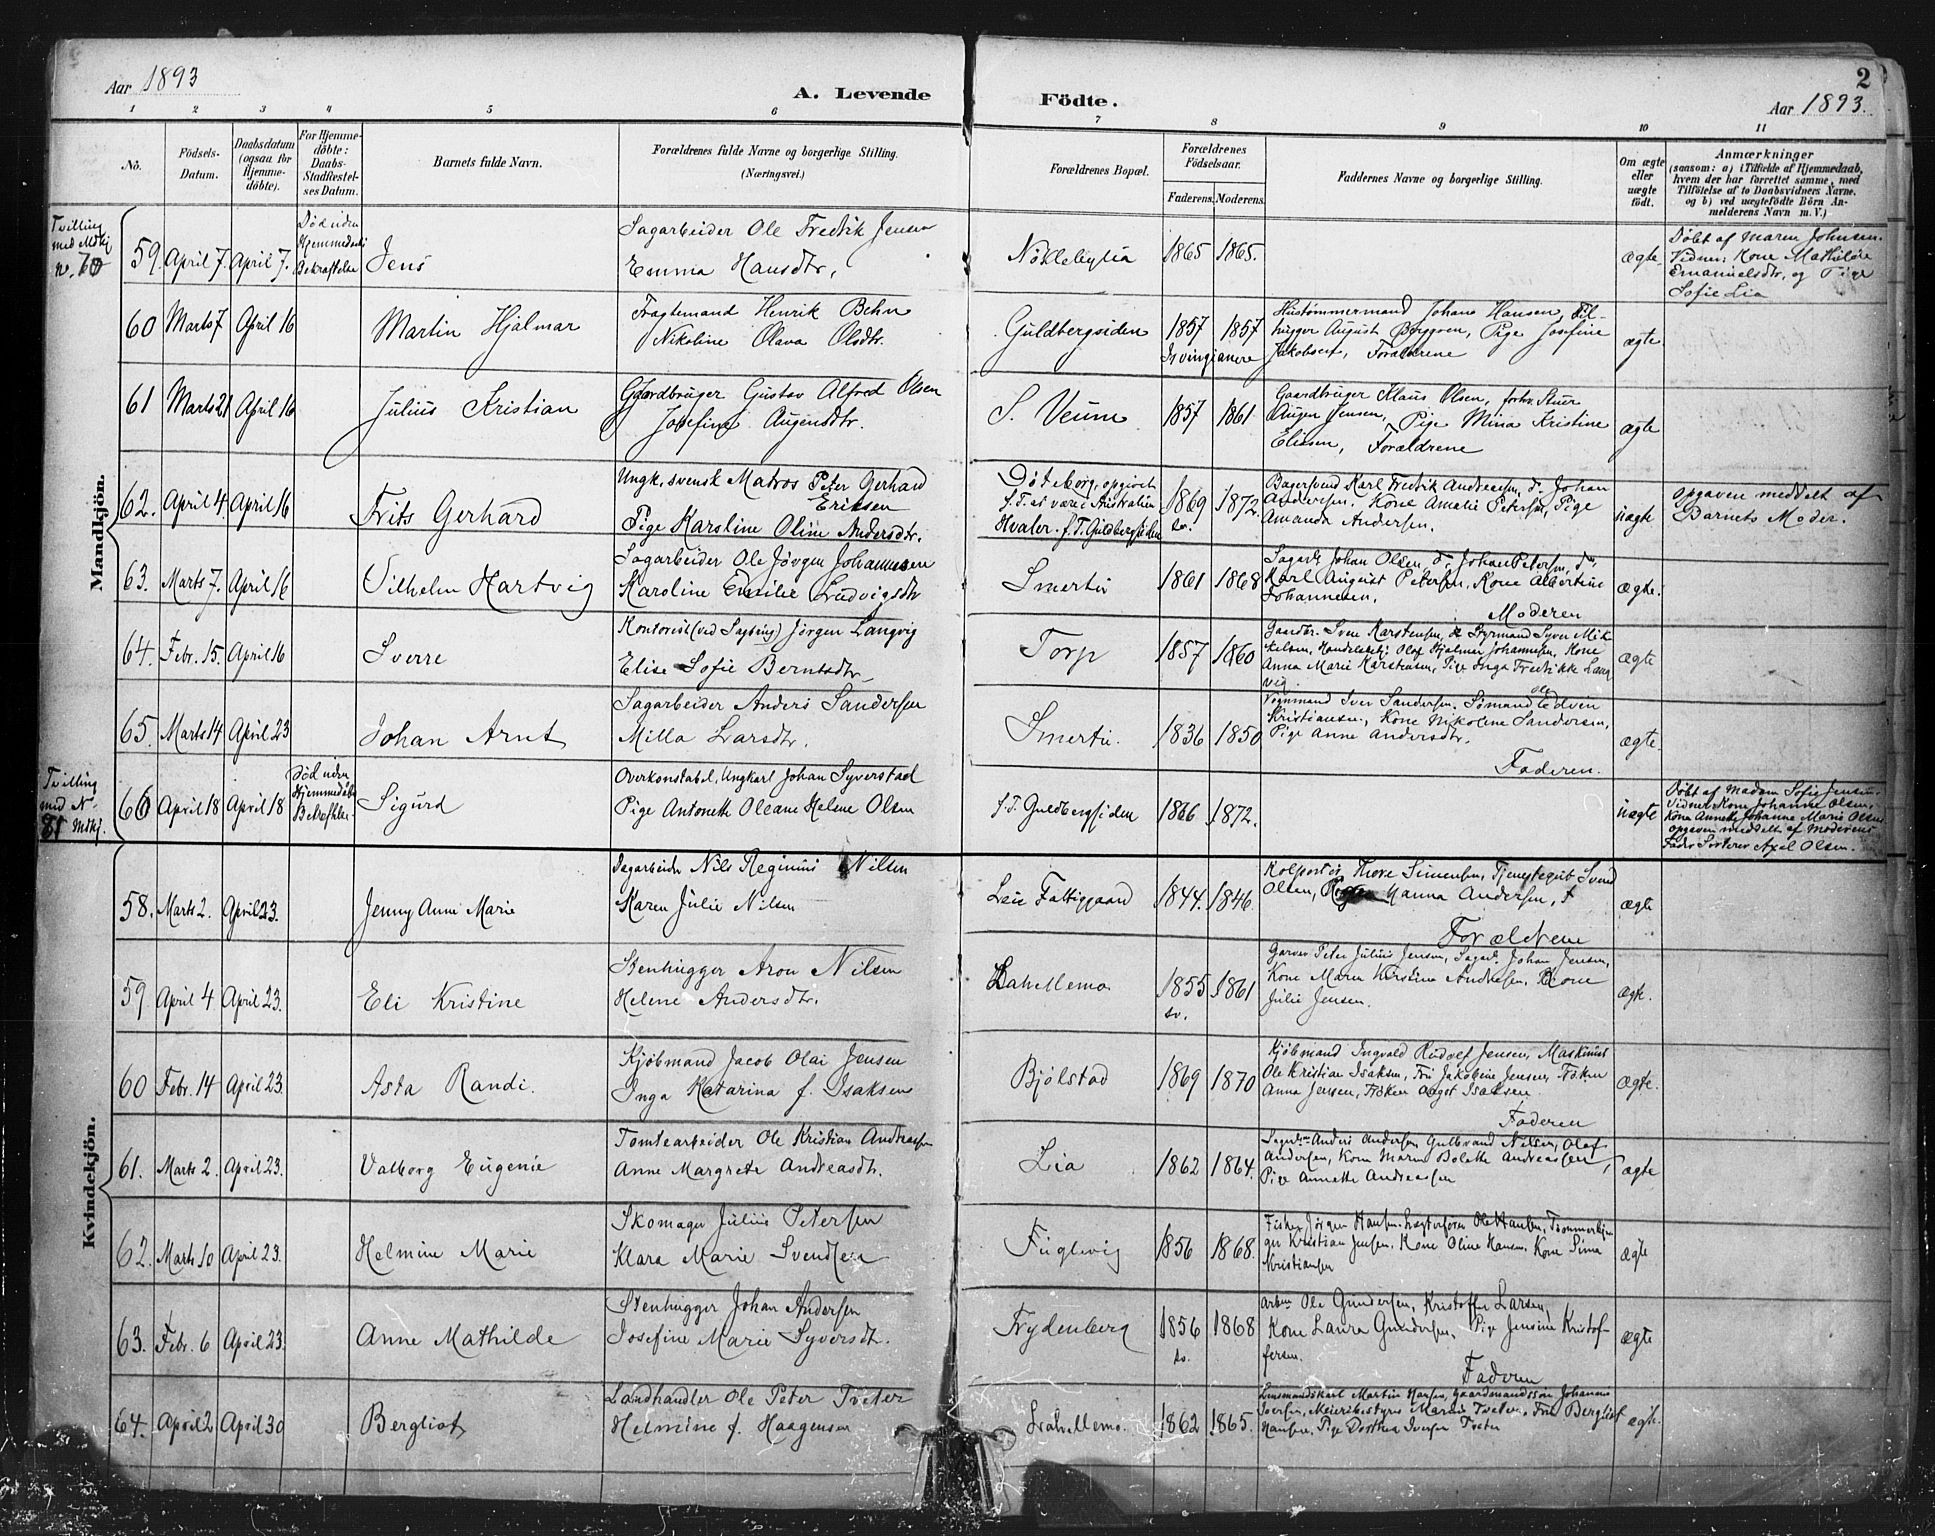 Aar 1893
A. Levende Födte.
2
Aar 1893.
1 2 3 4 5 6 7 8 9 10 11
No.
Födsels-Datum.
Daabsdatum (ogsaa for Hjemmedöbte).
For Hjemmedöbte: Daabs-Stadfæstelses Datum.
Barnets fulde Navn.
Forældrenes fulde Navne og borgerlige Stilling.
(Næringsvei.)
Forældrenes Bopæl.
Forældrenes Födselsaar.
Faderens. Moderens.
Faddernes Navne og borgerlige Stilling.
Om ægte eller uægte födt.
Anmærkninger
(saasom: a) i Tilfælde af Hjemmedaab, hvem der har forrettet samme, med Tilföielse af to Daabsvidners Navne, og b) ved uægtefödte Börn Anmelderens Navn m. V.)
Mandkjön.
Tvilling
med Mdkj
n. 70
59. April 7. April 7.
Död uden
Hjemmedaabs
Bekræftelse
Jens
Sagarbeider Ole Fredrik Jensen
Emma Hansdtr.
Nöklebylia
1865 1865.
ægte
Döbt af Maren Johnsen.
Vidner: Kone Mathilde
Emanuelsdtr. og Pige
Sofie Lia
60 Marts 7 April 16
Martin Hjalmar
Fragtemand Henrik Behn
Nikoline Olava Olsdtr.
Guldbergsiden
1857 1857
Irvingianere
Hustömmermand Johans Hansen, Fil-
hugger August Berggren, Pige Josefine
Jakobsen, Forældrene
ægte
61 Marts 21 April 16
Julius Kristian
Gaardbruger Gustav Alfred Olsen
Josefine Augensdtr.
S. Veum
1857 1861
Gaardbruger Klaus Olsen, forhv. Stuer
Augen Jensen, Pige Mina Kristine
Eliesen, Forældrene
ægte
62. April 4. April 16
Frits Gerhard
Ungk. svensk Matros Peter Gerhard
Eriksen
Pige Karoline Oline Andersdtr.
Göteborg, opgivet
f. T. at være i Australien
Hvaler. f. T. Guldbergsiden
1869 1872.
sv.
Bagersvend Karl Fredrik Andreassen, d. Johan
Andersen, Kone Amalie Petersen, Pige
Amanda Andersen.
uægte
Opgaven meddelt af
Barnets Moder.
63. Marts 7. April 16
Vilhelm Hartvig
Sagarbeider Ole Jörgen Johannesen
Karoline Emilie Ludvigsdtr
Smertu
1861 1868
Sagarb. Johan Olsen, d. Johan Petersen, do
Karl August Petersen, Kone Albertine
Johannesen,
Moderen
ægte.
64. Febr. 15. April 16
Sverre
Kontorist (ved Sagbrug) Jörgen Langvig
Elise Sofie Berntsdtr
Torp
1857 1860
Gaardbr. Sven Karstensen, do Styrmand Syver Mik
kelsen, Handelsbetj. Olaf Hjalmar Johannesen, Kone
Anna Marie Karstensen, Pige Inga Fredrikke Lang
vig.
ægte
65. Marts 14 April 23
Johan Arnt
Sagarbeider Anders Sandersen
Milla Larsdtr.
Smertu.
1836 1850
Vognmand Iver Sandersen, Sömand Ole Edvin
Kristiansen, Kone Nikoline Sandersen,
Pige Anne Andersdtr.
Faderen.
ægte
Tvilling
med N.
81 Mdkj.
66 April 18 April 18
Död uden
Hjemmedaabs
Bekræftelse
Sigurd
Overkonstabel, Ungkarl Johan Syverstad
Pige Antonette Oleane Helene Olsen
f. T. Guldbergsiden
1866 1872.
uægte
Döbt af Madam Sofie Jensen.
Vidner Kone Johanne Olsen,
Kone Annette Johanne Marie Olsen
opgaven meddelt af Moderens
Fader Sorterer Axel Olsen.
Kvindekjön.
58. Marts 2. April 23.
Jenny Anne Marie
Sagarbeider Nils Reginius Nilsen
Karen Julie Nilsen
Leie Fattiggaard
1844. 1846.
Kolportör Thore Simensen, Tjenestegut Svend
Olsen, Hanna Andersen,
Forældrene
ægte
59 April 4 April 23.
Eli Kristine
Stenhugger Aron Nilsen
Helene Andersdtr.
Lahellemo
1855 1861
sv.
Garver Peter Julius Jensen, Sagarb. Johan Jensen,
Kone Maren Kirstine Andresen, Kone
Julie Jensen.
ægte.
60 Febr. 14 April 23.
Asta Randi.
Kjöbmand Jacob Olai Jensen
Inga Katarina f. Isaksen
Bjölstad
1869 1870
Kjöbmand Ingvald Rudolf Jensen, Maskinist
Ole Kristian Isaksen, Fru Jakobine Jensen, Fröken
Anna Jensen, Fröken Aagot Isaksen
Faderen
ægte.
61. Marts 2. April 23.
Valborg Eugenie
Tomtearbeider Ole Kristian Andreassen
Anne Margrete Andreasdtr.
Lia
1862 1864.
Sagarb. Anders Andersen, Gulbrand Nilsen, Olaf
Andersen, Kone Maren Bolette Andreassen,
Pige Annette Andreassen
ægte
62. Marts 10 April 23.
Helmine Marie
Skomager Julius Petersen
Klara Marie Svendsen
Fuglevig
1856 1868.
Fisker Jörgen Hansen, Lægterformand Ole Hansen, Tömmerhug
ger Kristian Jensen, Kone Oline Hansen, Kone Sina
Kristiansen
ægte
63. Febr. 6 April 23.
Anne Mathilde
Stenhugger Johan Andersen
Josefine Marie Syversdtr.
Frydenberg
1856 1868
sv.
Arbm Ole Gundersen, Kristoffer Larsen,
Kone Laura Gundersen, Pige Jensine Kristof-
fersen.
Faderen
ægte
64. April 2 April 30
Bergliot
Landhandler Ole Peter Tveter
Helmine f. Haagensen
Lahellemo.
1862 1865.
Lensmandskarl Martin Hansen, Gaardmandssön Johannes
Iversen, Meieribestyrer Marius Tveter, Frk Bergliot
Hansen, Pige Dorthea Iversen Tveter
ægte.